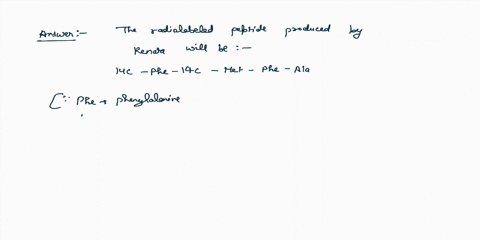 Answer:- The radialabeled peptide produced by
Renata will be :-
14C - Phe - 14C - Met - Phe - Ala
[∵ Phe → phenylalanine